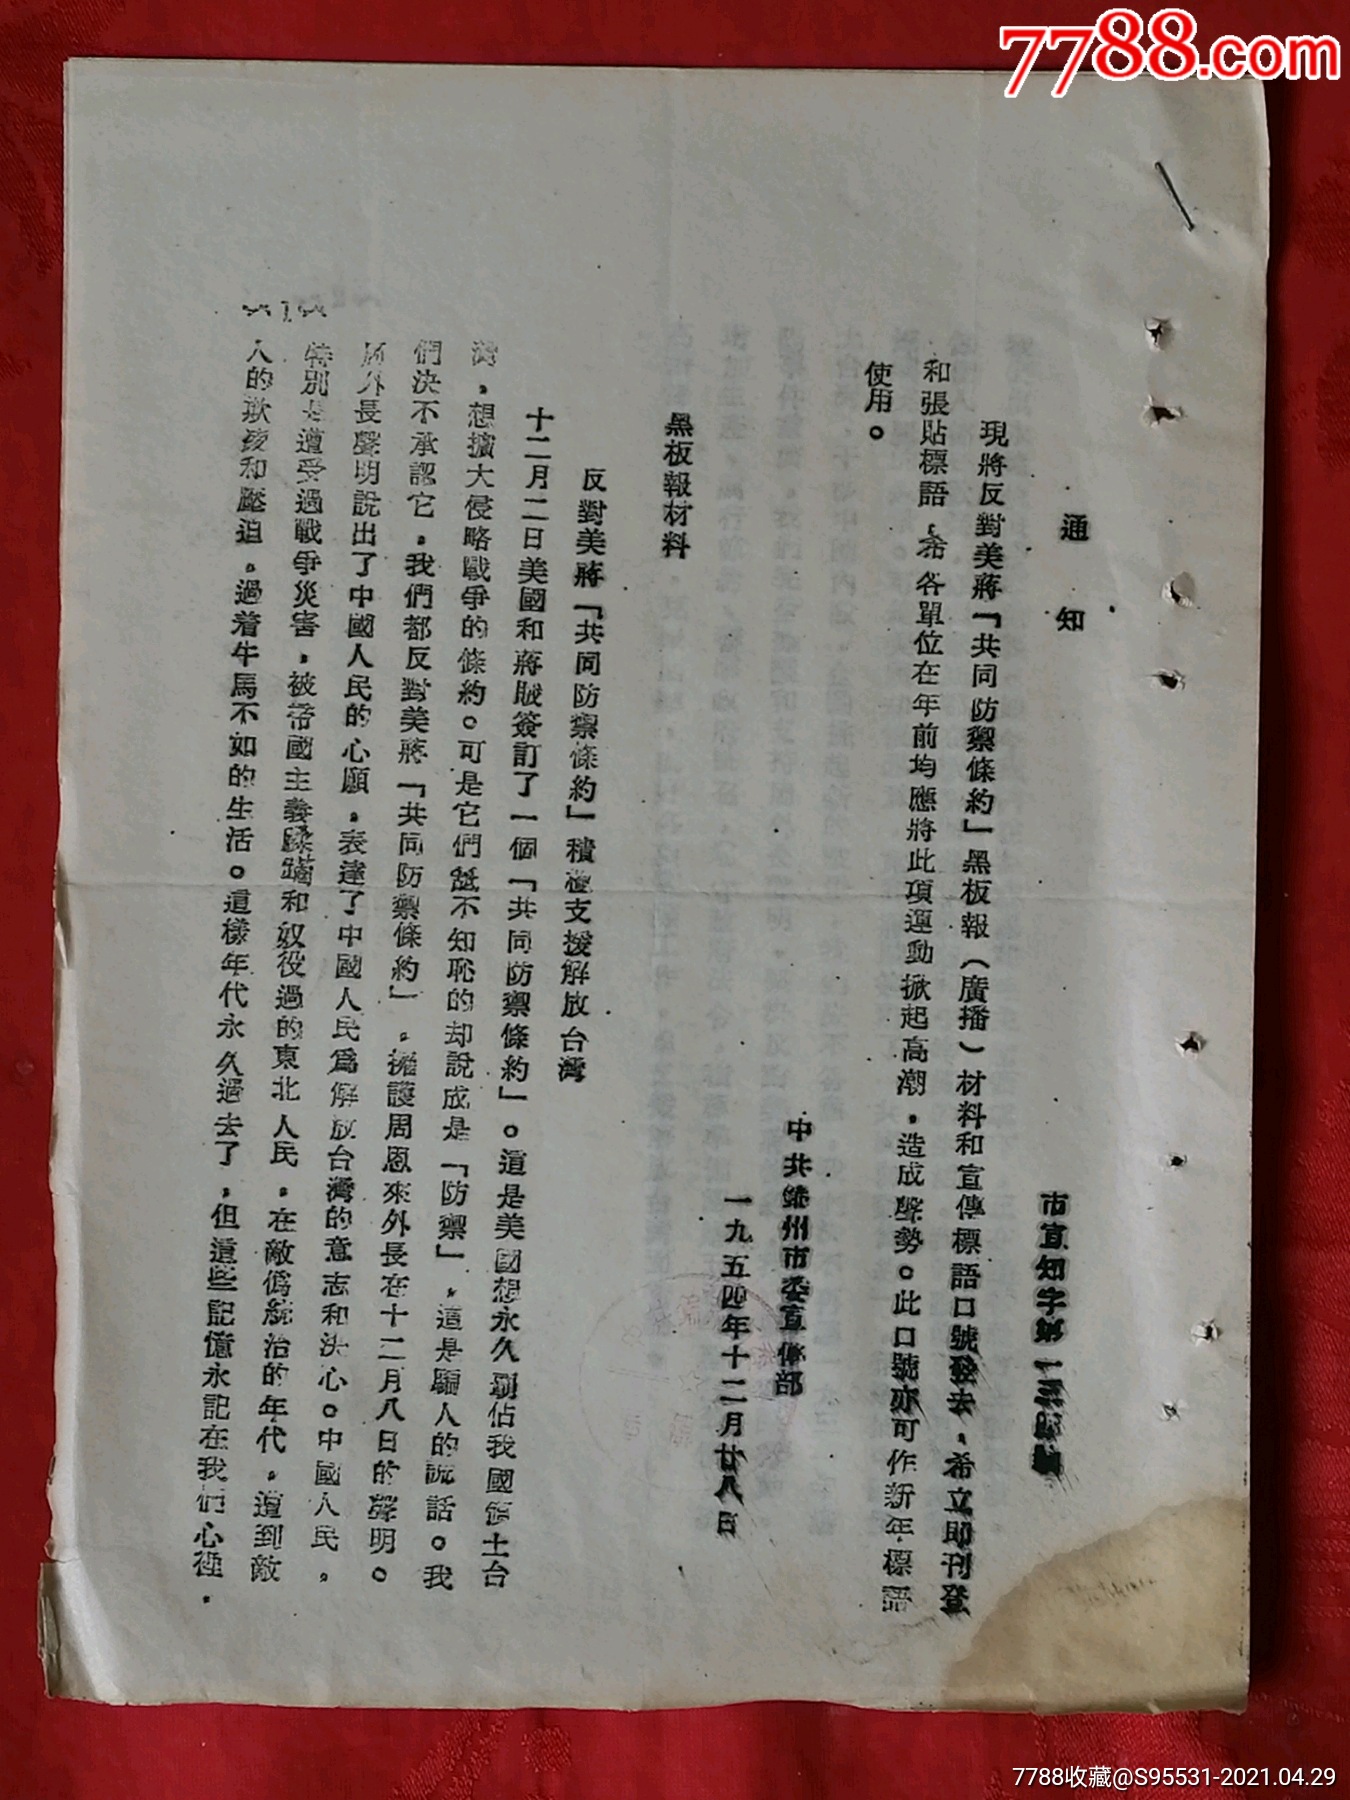 7788.com
市宣知字第
通知
現將反對美蔣「共同防禦條約」黑板報（廣播）材料和宣傳標語口號發去，希立即刊登
和張貼標語，希各單位在年前均應將此項運動掀起高潮，造成聲勢。此口號亦可作新年標語
使用。
中共錦州市委宣傳部
一九五四年十二月廿八日
黑板報材料
反對美蔣「共同防禦條約」積極支援解放台灣
十二月二日美國和蔣賊簽訂了一個「共同防禦條約」。這是美國想永久霸佔我國領土台
灣，想擴大侵略戰爭的條約。可是它們誕不知恥的却說成是「防禦」，這是騙人的謊話。我
們決不承認它，我們都反對美蔣「共同防禦條約」，擁護周恩來外長在十二月八日的聲明。
周外長聲明說出了中國人民的心願，表達了中國人民爲解放台灣的意志和決心。中國人民，
特別是遭受過戰爭災害，被帝國主義蹂躪和奴役過的東北人民，在敵僞統治的年代，遭到敵
人的和壓迫，過着牛馬不如的生活。這樣年代永久過去了，但這些記憶永記在我們心裡，
1
7788收藏@S95531-2021.04.29